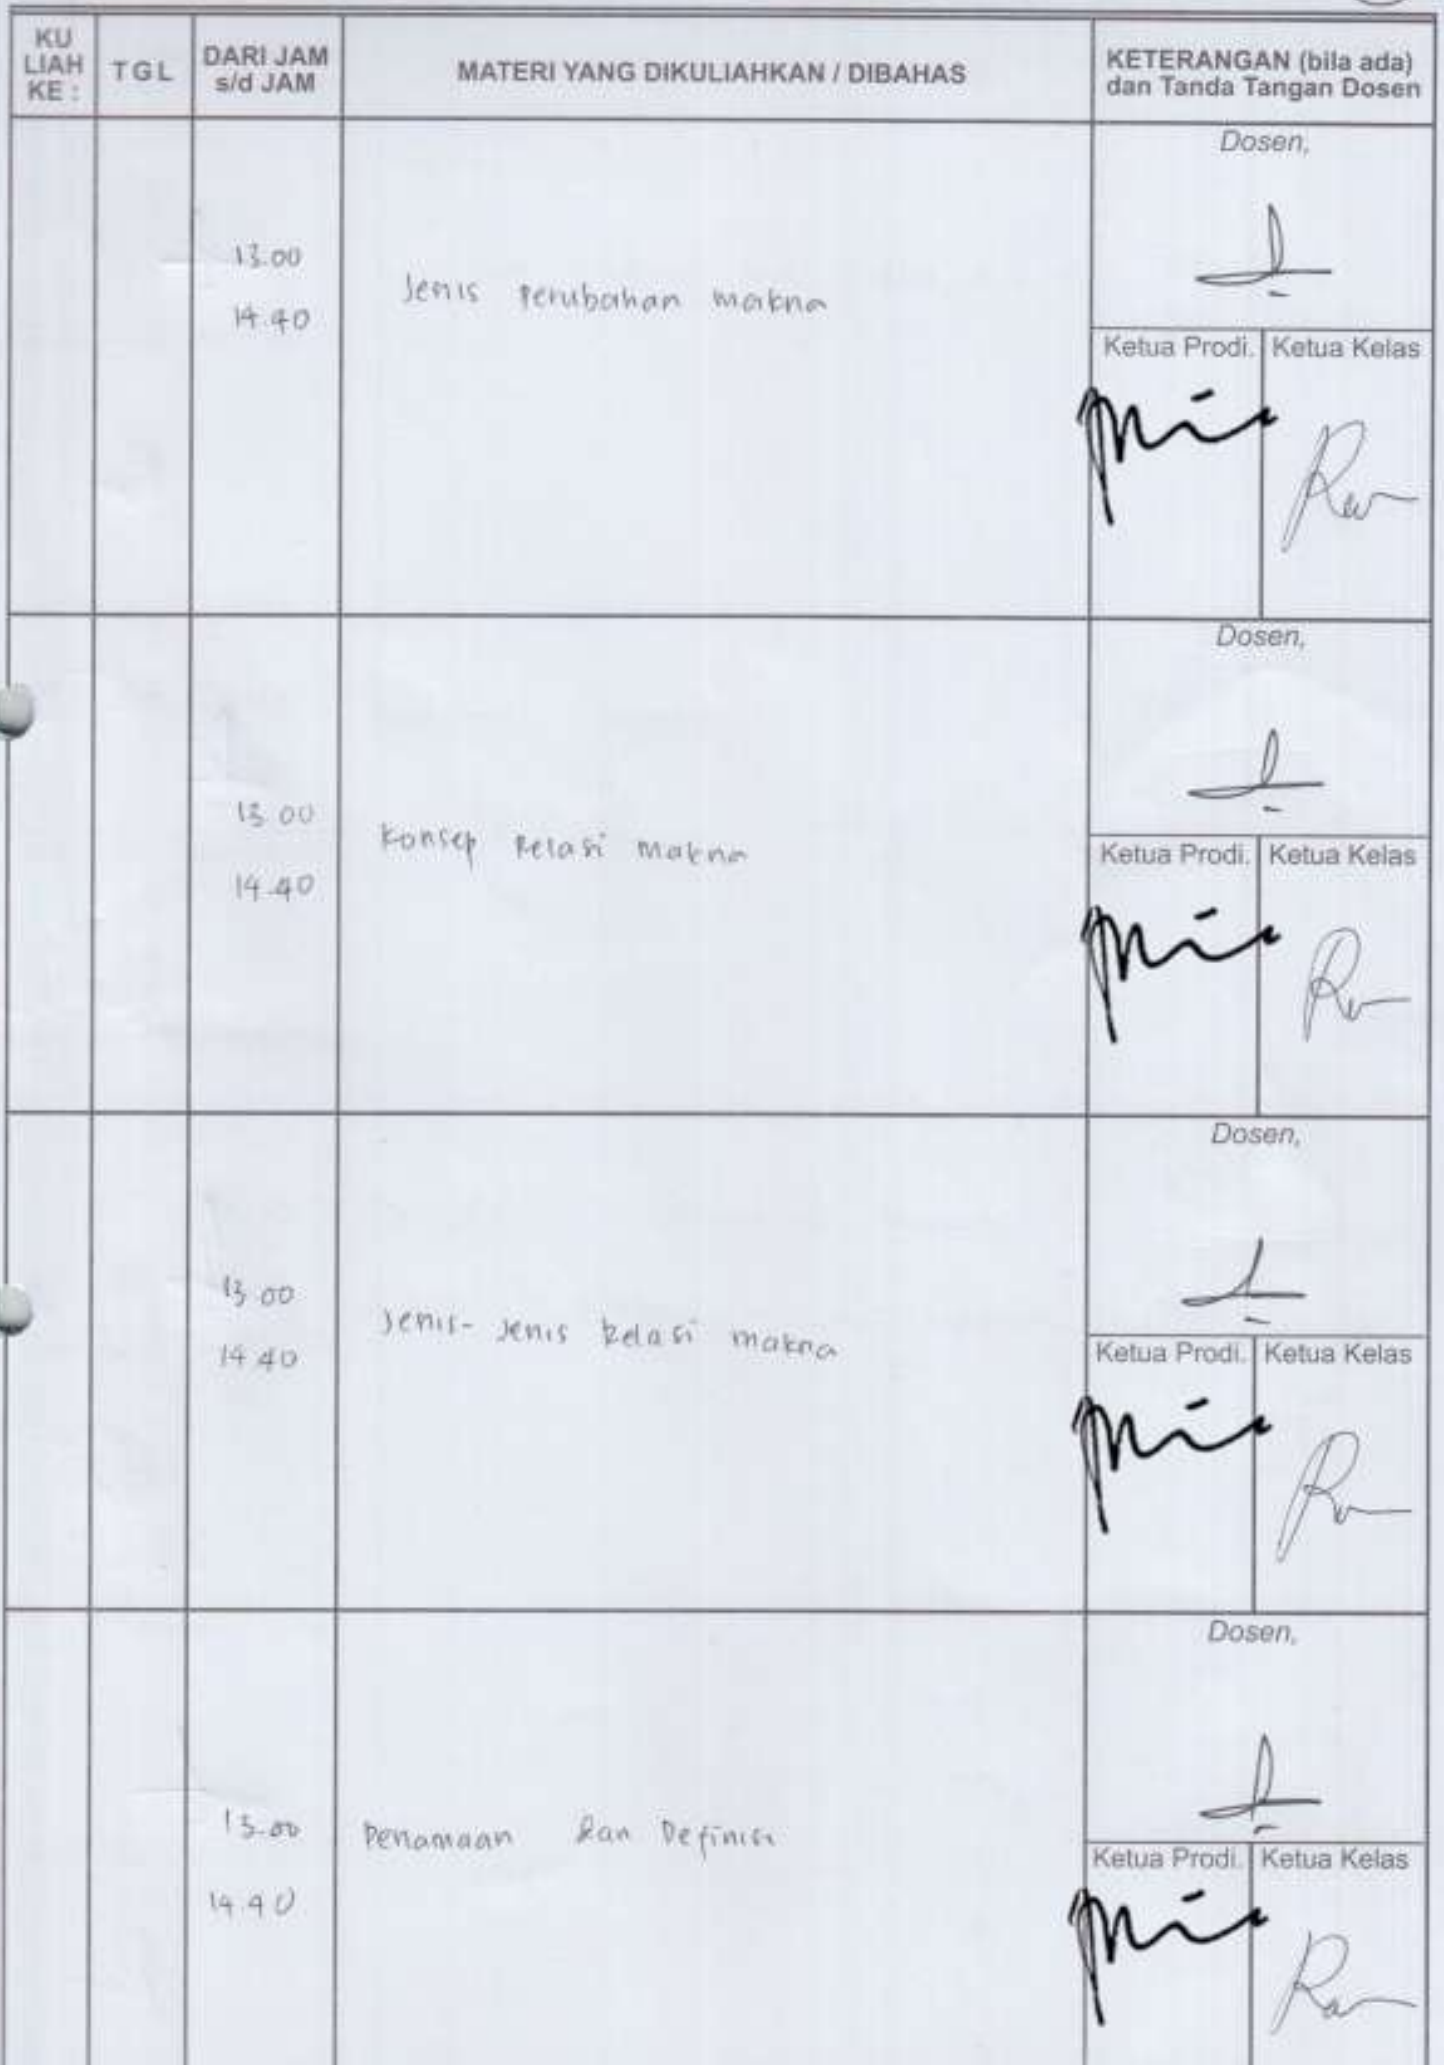 KU
LIAH
KE :
TGL
DARI JAM
s/d JAM
MATERI YANG DIKULIAHKAN / DIBAHAS
KETERANGAN (bila ada)
dan Tanda Tangan Dosen
Dosen,
13.00
14.40
Jenis Perubahan makna
Ketua Prodi. Ketua Kelas
Dosen,
13.00
14.40
Konsep Relasi Makna
Ketua Prodi. Ketua Kelas
Dosen,
13.00
14.40
Jenis-Jenis Relasi makna
Ketua Prodi. Ketua Kelas
Dosen,
13.00
14.40
Penamaan dan Definisi
Ketua Prodi. Ketua Kelas